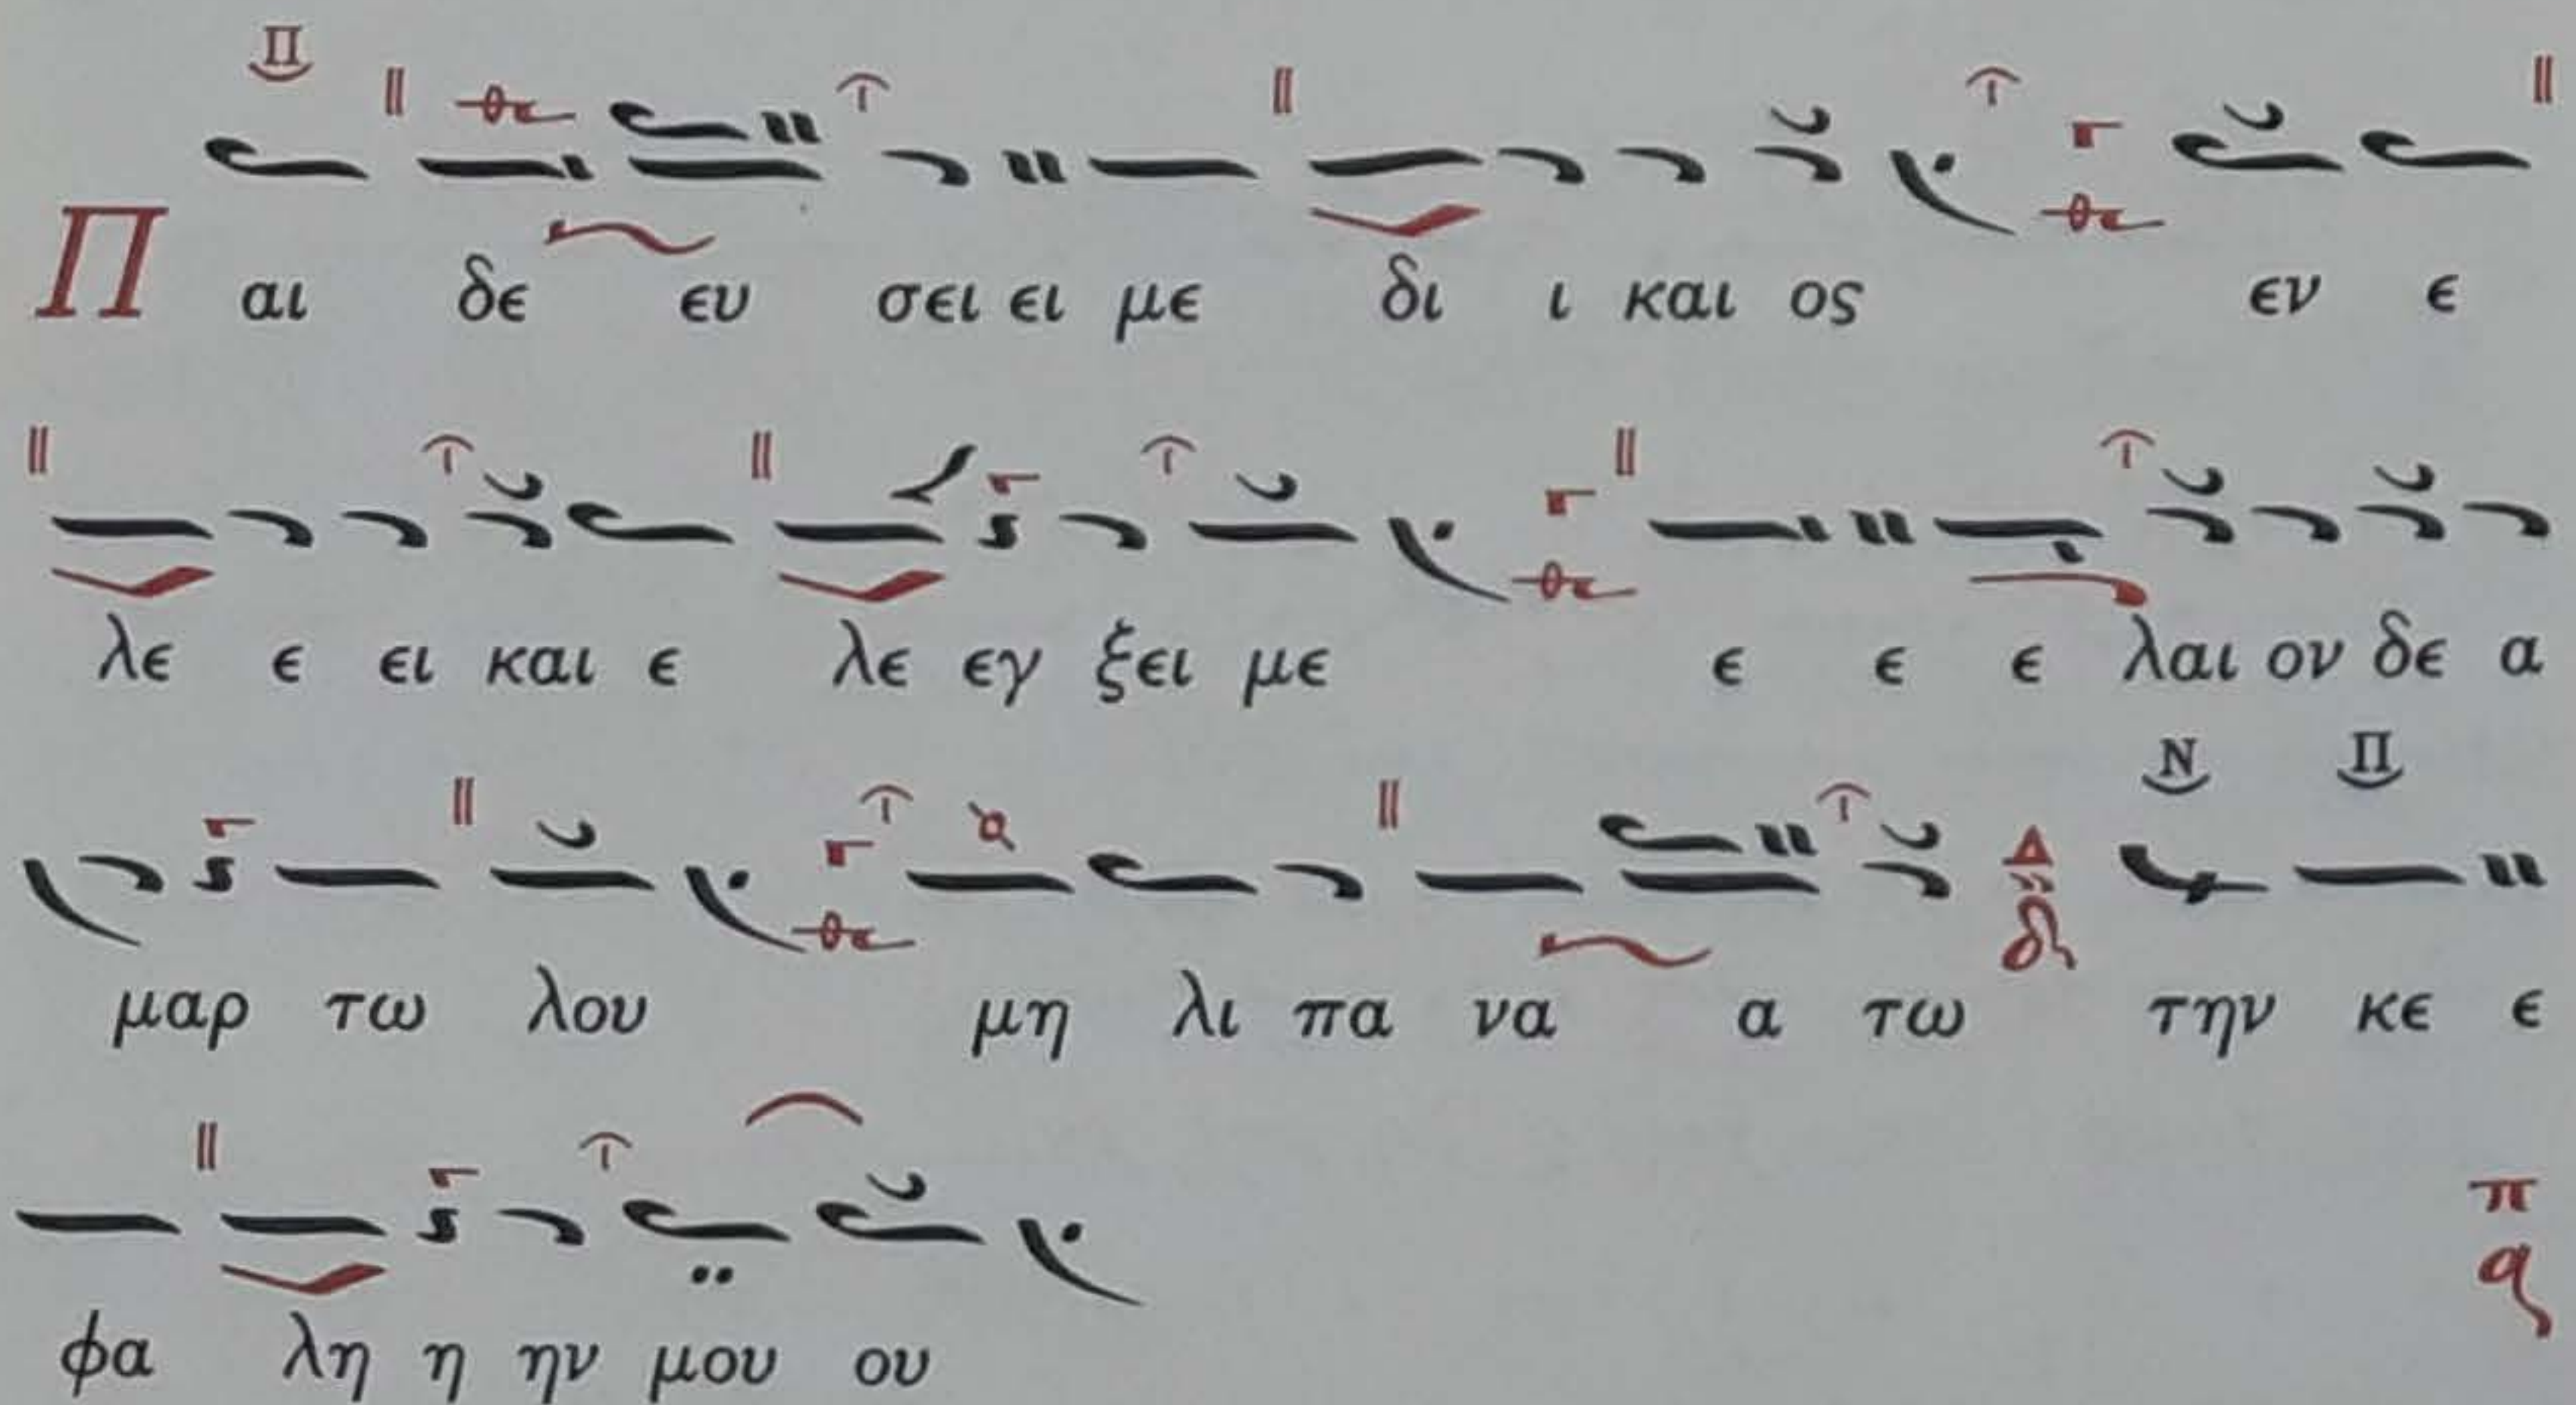 Π
Π αι δε ευ σει ει με δι ι και ος εν ε
λε ε ει και ε λε εγ ξει με ε ε ε λαι ον δε α
Ν Π
μαρ τω λου μη λι πα να α τω Δ την κε ε
φα λη η ην μου ου π